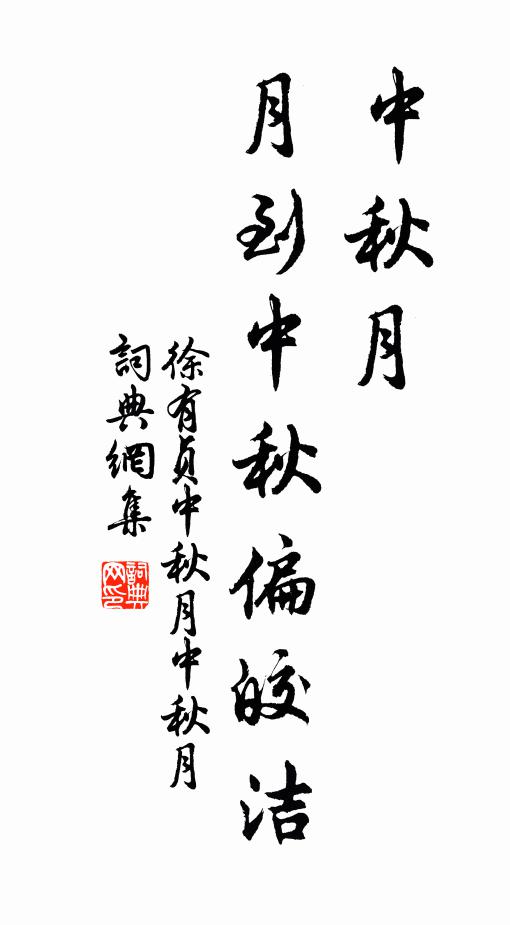 中秋月
月到中秋偏皎洁
徐有貞中秋月中秋月
詞典網集
詞典网印